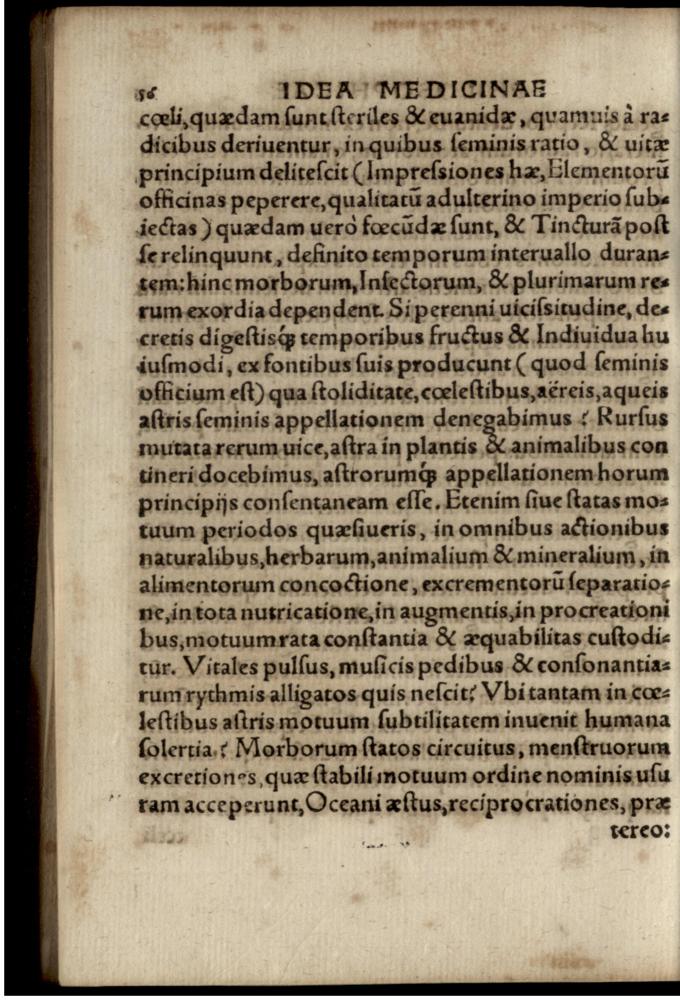 56 IDEA MEDICINAE
cœli, quædam sunt steriles & euanidæ, quamuis à ra⸗
dicibus deriuentur, in quibus seminis ratio, & uitæ
principium delitescit (Impressiones hæ, Elementorũ
officinas peperere, qualitatũ adulterino imperio sub⸗
iectas) quædam uerò fœcũdæ sunt, & Tincturã post
se relinquunt, definito temporum interuallo duran⸗
tem: hinc morborum, Insectorum, & plurimarum re⸗
rum exordia dependent. Si perenni uicissitudine, de⸗
cretis digestisq́ꝫ temporibus fructus & Indiuidua hu
iusmodi, ex fontibus suis producunt (quod seminis
officium est) qua stoliditate, cœlestibus, aëreis, aqueis
astris seminis appellationem denegabimus? Rursus
mutata rerum uice, astra in plantis & animalibus con
tineri docebimus, astrorumq́ꝫ appellationem horum
principijs consentaneam esse. Etenim siue statas mo⸗
tuum periodos quæsiueris, in omnibus actionibus
naturalibus, herbarum, animalium & mineralium, in
alimentorum concoctione, excrementorũ separatio⸗
ne, in tota nutricatione, in augmentis, in procreationi
bus, motuum rata constantia & æquabilitas custodi⸗
tur. Vitales pulsus, musicis pedibus & consonantia⸗
rum rythmis alligatos quis nescit? Vbi tantam in cœ⸗
lestibus astris motuum subtilitatem inuenit humana
solertia? Morborum statos circuitus, menstruorum
excretiones, quæ stabili motuum ordine nominis usu
ram acceperunt, Oceani æstus, reciprocrationes, præ
tereo: